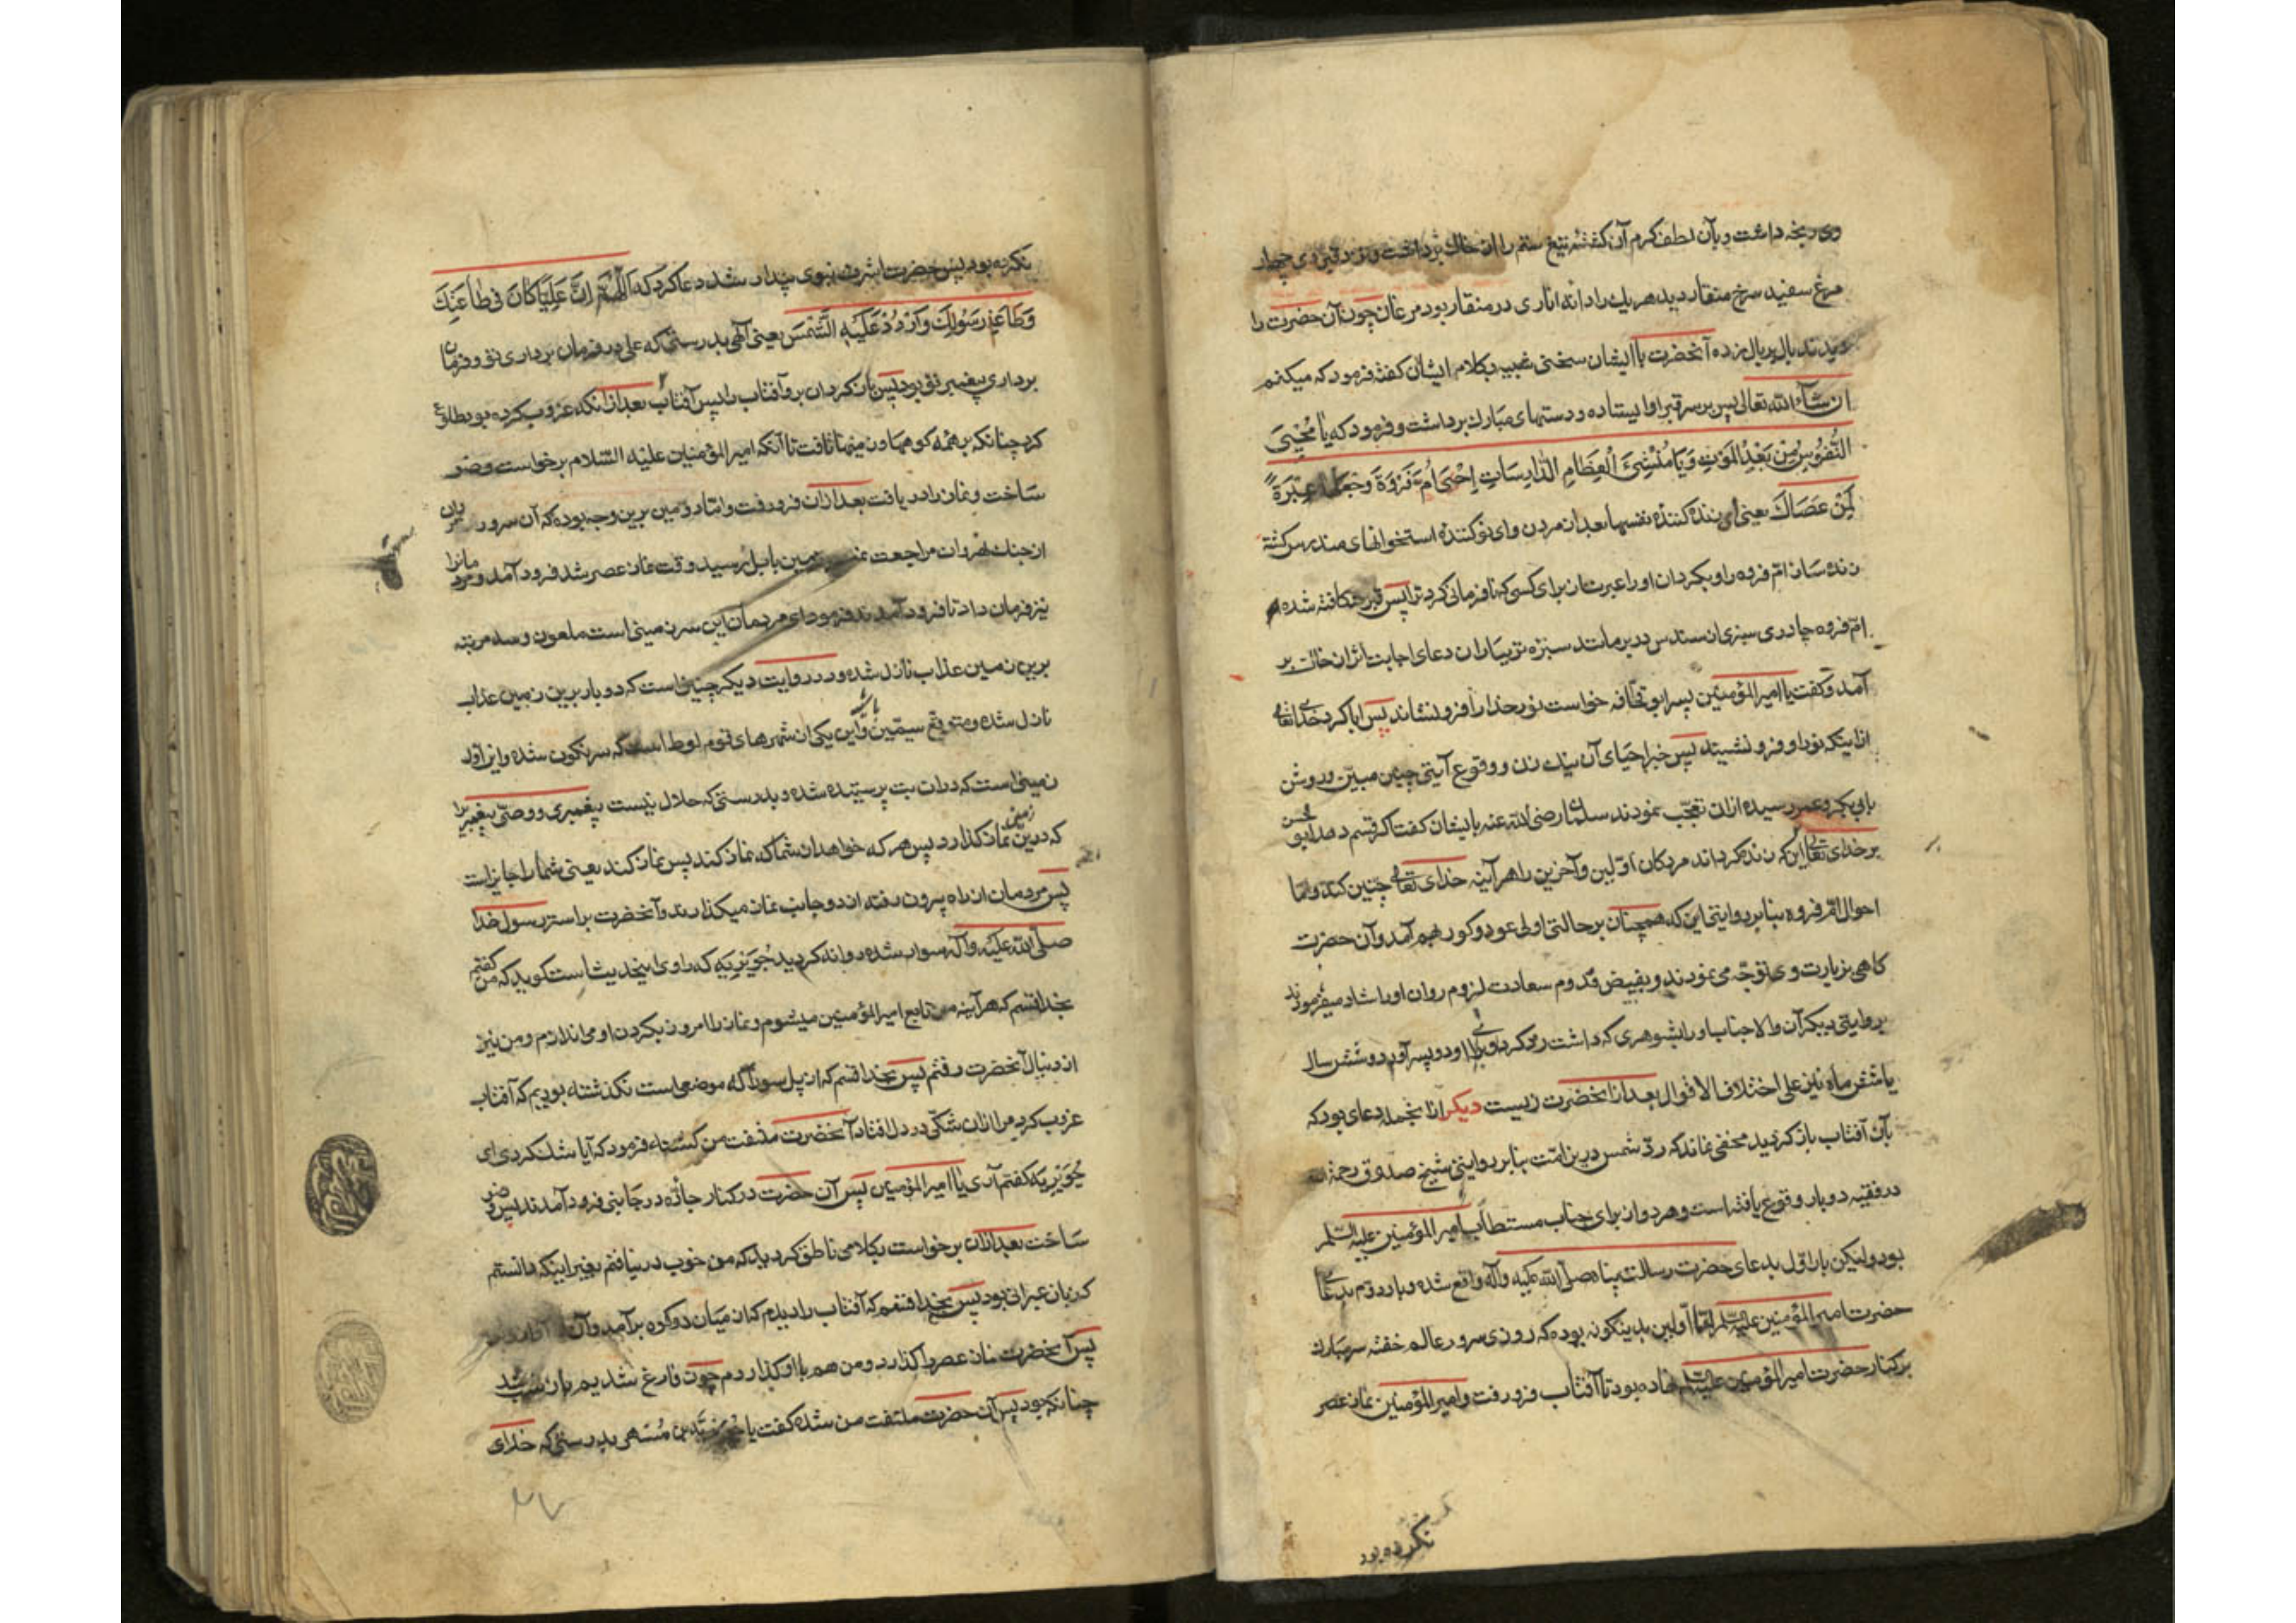 وی ریخته داشت و بآن لطف کرم آن کشته تیغ ستم را از خاک برداشت و نزد قبر وی چهار
مرغ سفید سرخ منقار دید هر یک را دانه اناری در منقار بود مرغان چون آن حضرت را
دیدند بال بر بال زده آنحضرت با ایشان سخنی غیبیه بکلام ایشان کفته فرمود که میکنم
ان شاء الله تعالی پس بر سر قبر او ایستاده و دستهای مبارک برداشت و فرمود که یا مُحْیِیَ
النُّفُوسِ مِنْ بَعْدِ المَوْتِ وَیَا مُنْشِیَ الْعِظَامِ الدَّارِسَاتِ اِحْیِ اُمَّ فَرْوَةَ وَجْعَلْهَا عِبْرَةً
لِمَنْ عَصَاكَ یعنی ای زنده کنندهٔ نفسها بعد از مردن و ای نو کنندهٔ استخوانهای مندرس کشته
زنده ساز ام فروه را و بکردان او را عبرت از برای کسی که نافرمانی کرد ترا پس قبر شکافته شده
ام فروه چادری سبز از سندس در بر مانند سبزهٔ نو بباران دعای اجابت اثر از خاک بر
آمد و کفت یا امیر المؤمنین پسر ابو قحافه خواست نور خدا را فرو نشاند پس ابا کرد خدای تعالی
از اینکه نور او فرو نشیند پس خبر احیای آن نیک زن و وقوع آیتی چنین مبیّن و روشن
بابی بکر و عمر رسیده ازان تعجب نمودند سلمان رضی الله عنه بایشان کفت اکر قسم دهد ابو الحسن
بر خدای تعالی این که زنده کرداند مردکان اوّلین و آخرین را هر آینه خدای تعالی چنین کند و اما
احوال ام فروه بنا بر روایتی این که همچنان بر حالتی اولی عود و کور بهم آمد و آن حضرت
کاهی بزیارت وی توجّه می نمودند و بفیض قدوم سعادت لزوم روان او را شاد میفرمودند
بروایتی دیکر آن والا جناب او را بشوهری که داشت رد کرد و برای او دو پسر آورد و شش سال
یا شش ماه نیز علی اختلاف الاقوال بعد از آنحضرت زیست دیکر از آنجمله دعای بود که
بآن آفتاب باز کردید مخفی نماند که ردّ شمس درین امّت بنا بر روایتی شیخ صدوق رحمة الله
در فقیه دو بار وقوع یافته است و هر دو از برای جناب مستطاب امیر المؤمنین علیه السلم
بود ولیکن بار اوّل بدعای حضرت رسالت پناه صلّی الله علیه وآله واقع شده و بار دوّم بدعای
حضرت امیر المؤمنین علیه السلم امّا اولین بدینکونه بوده که روزی سرور عالم خفته سر مبارک
بر کنار حضرت امیر المؤمنین علیه السلم نهاده بود تا آفتاب فرو رفت و امیر المؤمنین نماز عصر
نکرده بود
نکرده بود پس حضرت اشرف نبوی بیدار شد دعا کرد که اَللّٰهُمَّ اِنَّ عَلِیًّا کَانَ فِی طَاعَتِكَ
وَطَاعَةِ رَسُولِكَ وَارْدُدْ عَلَیْهِ الشَّمْسَ یعنی آلهی بدرستی که علی در فرمان برداری تو و فرمان
برداری پیغمبر تو بود پس باز کردان برو آفتاب را پس آفتاب بعد از آنکه غروب کرده بود طلوع
کرد چنانکه بر همه کوهها و زمینها تافت تا آنکه امیر المؤمنین علیه السّلام برخواست وضو
ساخت و نماز را دریافت بعد ازان فرو رفت و امّا دوّمین برین وجه بوده که آن سرور
از جنک نهروان مراجعت نمود بزمین بابل رسید وقت نماز عصر شد فرود آمد و مردمانرا
نیز فرمان داد تا فرود آمدند فرمود ای مردمان این سرزمینی است ملعون و سه مرتبه
برین زمین عذاب نازل شده و در روایت دیکر چنین است که دو بار برین زمین عذاب
نازل شده و متوقع سیمین بار و این یکی از شهرهای قوم لوط است که سرنکون شده و این اوّل
زمینی است که دران بت پرستیده شده و بدرستی که حلال نیست پیغمبری و وصیّ پیغمبر را
که درین زمین نماز کذارد پس هر که خواهد از شما که نماز کند پس نماز کند یعنی شما را جایز است
پس مردمان از راه بیرون رفته از دو جانب نماز میکذارند و آنحضرت بر استر رسول خدا
صلّی الله علیه وآله سوار شده روانه کردید جُوَیْرِیَه که راوی این حدیث است کوید که من کفتم
بخدا قسم که هر آینه من تابع امیر المؤمنین میشوم و نماز را امروز بکردن او می اندازم و من نیز
از دنبال آنحضرت رفتم پس بخدا قسم که از پل سورا که موضعی است نکذشته بودیم که آفتاب
غروب کرد مرا ازان شکّی در دل افتاد آنحضرت ملتفت من کشته فرمود که آیا شک کردی ای
جُوَیْرِیَه کفتم آری یا امیر المؤمنین پس آن حضرت در کنار جاده در جانبی فرود آمدند پس وضو
ساخت بعد ازان برخواست بکلامی ناطق کردید که من خوب در نیافتم بغیر اینکه دانستم
که زبان عبرانی بود پس بخدا قسم که آفتاب را دیدم که از میان دو کوه بر آمد و آن
پس آنحضرت نماز عصر را کذارد و من هم با او کذاردم چون فارغ شدیم باز شب شد
چنانکه بود پس آن حضرت ملتفت من شده کفت یا جُوَیْرِیَه بن مُسْهِر بدرستی که خدای
۲۷